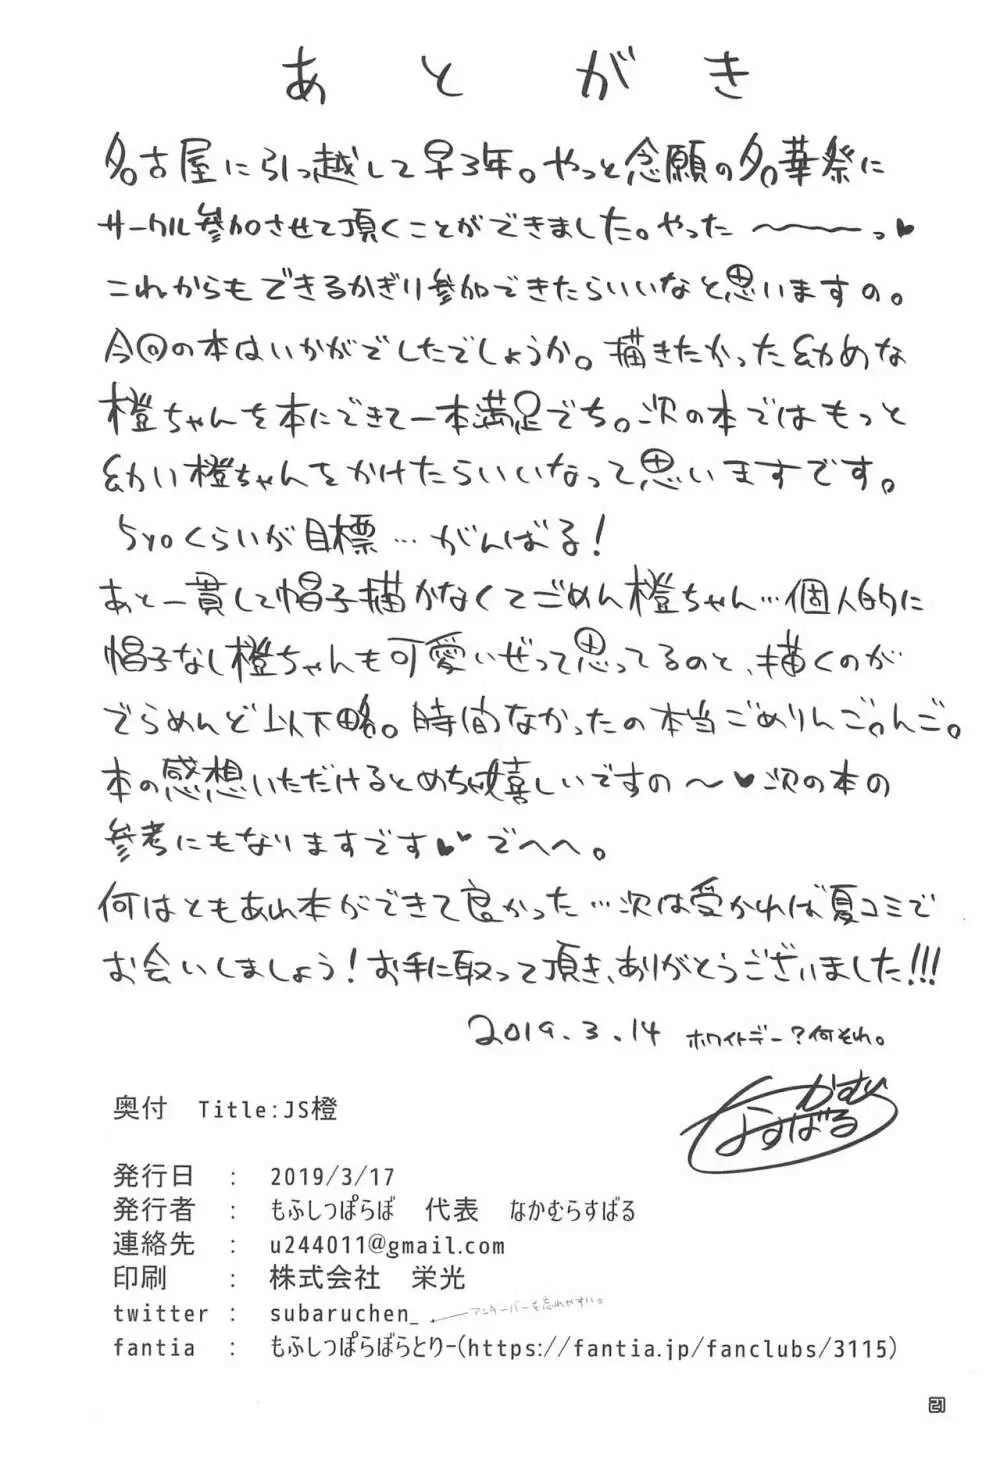 あとがき
名古屋に引っ越して早3年。やっと念願の名華祭に
サークル参加させて頂くことができました。やった〜〜〜っ♥
これからもできるかぎり参加できたらいいなと思いますの。
今回の本はいかがでしたでしょうか。描きたかった幼めな
橙ちゃんを本にできて一本満足でち。次の本ではもっと
幼い橙ちゃんをかけたらいいなって思いますです。
5yoくらいが目標…がんばる!
あと一貫して帽子描かなくてごめん橙ちゃん…個人的に
帽子なし橙ちゃんも可愛いぜって思ってるのと、描くのが
でらめんど以下略。時間なかったの本当ごめりんご。んご。
本の感想いただけるとめちゃ嬉しいですの〜♥次の本の
参考にもなりますです♥♥でへへ。
何はともあれ本ができて良かった…次は受かれば夏コミで
お会いしましょう!お手に取って頂き、ありがとうございました!!!
2019.3.14 ホワイトデー?何それ。
なかむらすばる
奥付 Title:JS橙
発行日 : 2019/3/17
発行者 : もふしっぽらぼ 代表 なかむらすばる
連絡先 : u244011@gmail.com
印刷 : 株式会社 栄光
twitter : subaruchen_ ← アンダーバーを忘れやすい。
fantia : もふしっぽらぼらとりー(https://fantia.jp/fanclubs/3115)
21